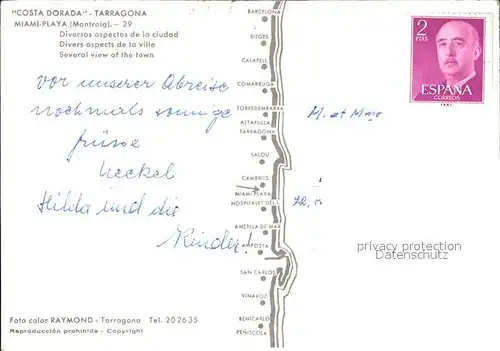 "COSTA DORADA" - TARRAGONA
MIAMI-PLAYA (Montroig). - 29
Diversos aspectos de la ciudad
Divers aspects de la ville
Several view of the town
vor unserer Abreise
nochmals sonnige
Heckel
Hilda und die
Kinder!
Foto color RAYMOND - Tarragona Tel. 20 26 35
Reproducción prohibida - Copyright
BARCELONA
SITGES
CALAFELL
COMARRUGA
TORREDEMBARRA
ALTAFULLA
TARRAGONA
SALOU
CAMBRILS
MIAMI-PLAYA
HOSPITALET DEL I.
AMETLLA DE MAR
AMPOSTA
SAN CARLOS
VINAROZ
BENICARLO
PEÑISCOLA
2
PTAS
ESPAÑA
CORREOS
M. et Mme
72, 
privacy protection
Datenschutz